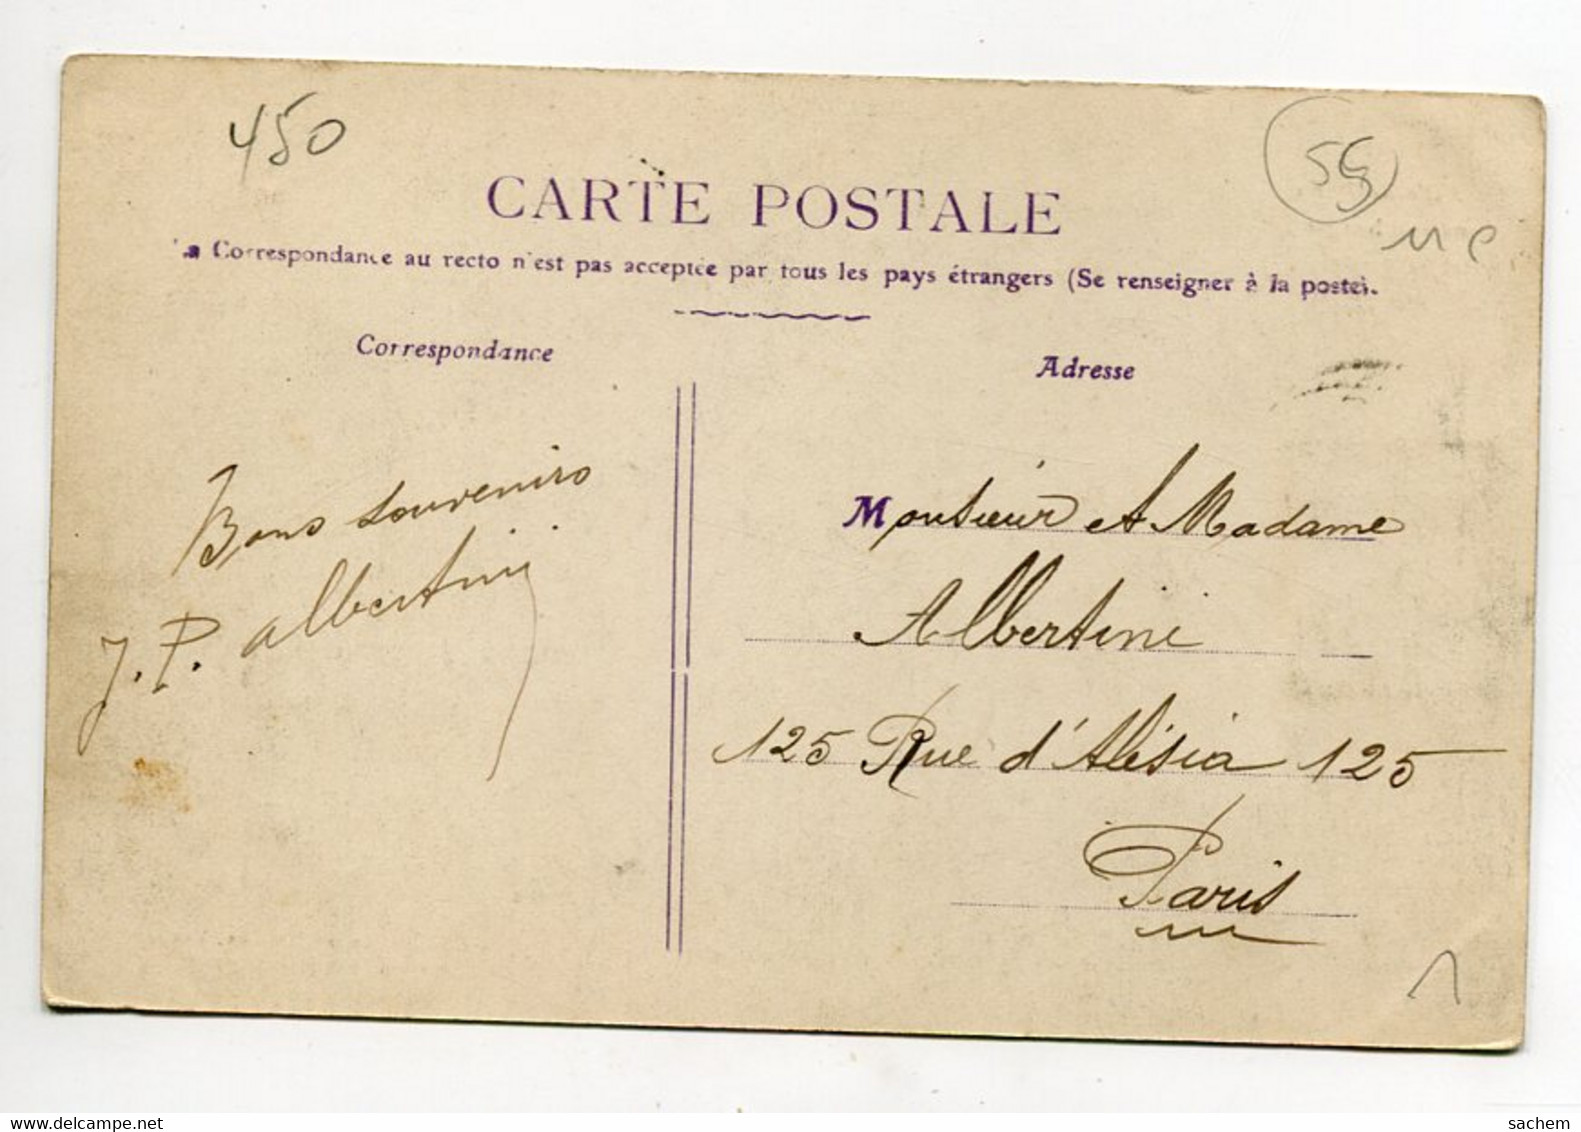 450
55
CARTE POSTALE
La Correspondance au recto n'est pas acceptée par tous les pays étrangers (Se renseigner à la poste).
Correspondance
Adresse
Bons souvenirs
J. P. Albertini
Monsieur et Madame
Albertini
125 Rue d'Alésia 125
Paris
sachem